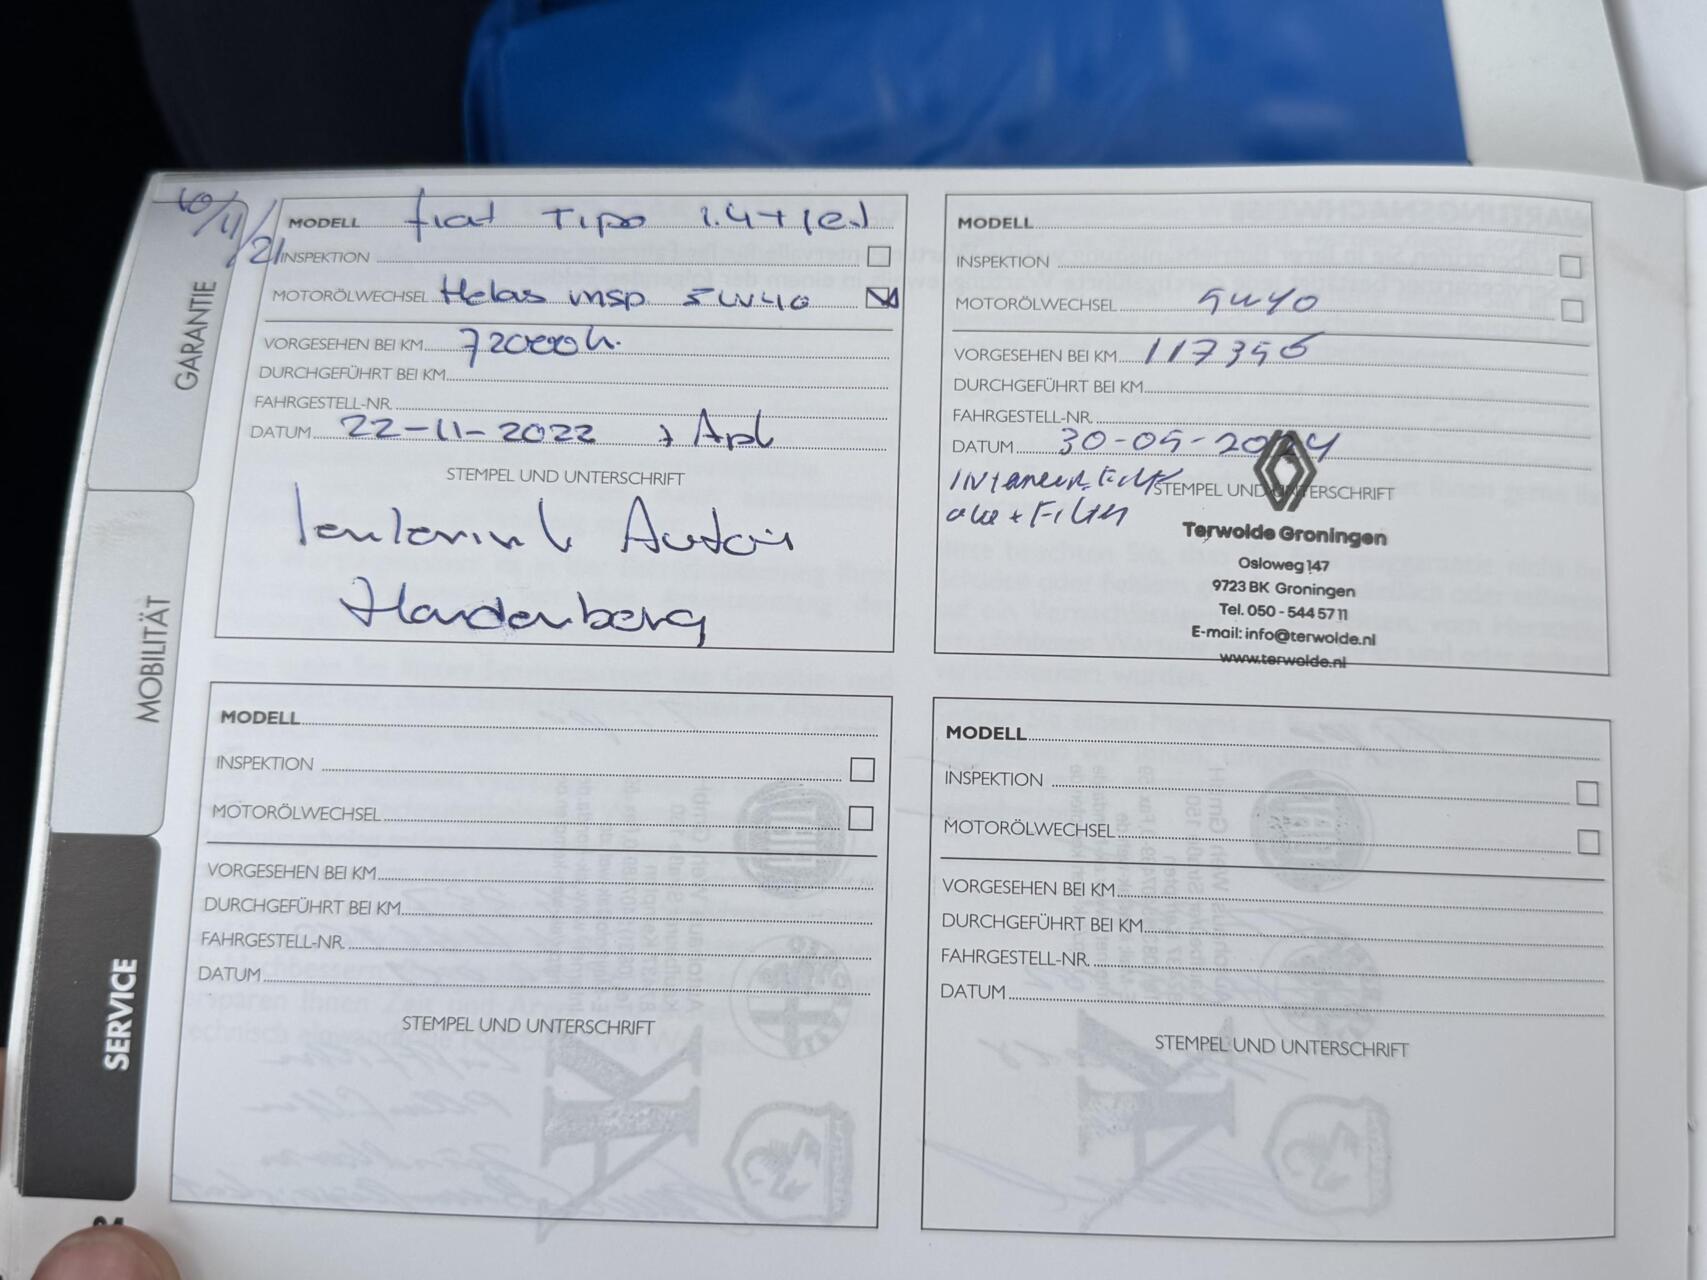 10/11/21
MODELL fiat Tipo 1.4
INSPEKTION
MOTORÖLWECHSEL insp 5W40
VORGESEHEN BEI KM 72000
DURCHGEFÜHRT BEI KM
FAHRGESTELL-NR.
DATUM 22-11-2022 + Apk
STEMPEL UND UNTERSCHRIFT
Auto's
Hardenberg
MODELL
INSPEKTION
MOTORÖLWECHSEL 5W40
VORGESEHEN BEI KM 117356
DURCHGEFÜHRT BEI KM
FAHRGESTELL-NR.
DATUM 30-05-2024
STEMPEL UND UNTERSCHRIFT
olie + Filter
Terwolde Groningen
Osloweg 147
9723 BK Groningen
Tel. 050 - 544 57 11
E-mail: info@terwolde.nl
www.terwolde.nl
MODELL
INSPEKTION
MOTORÖLWECHSEL
VORGESEHEN BEI KM
DURCHGEFÜHRT BEI KM
FAHRGESTELL-NR.
DATUM
STEMPEL UND UNTERSCHRIFT
MODELL
INSPEKTION
MOTORÖLWECHSEL
VORGESEHEN BEI KM
DURCHGEFÜHRT BEI KM
FAHRGESTELL-NR.
DATUM
STEMPEL UND UNTERSCHRIFT
GARANTIE
MOBILITÄT
SERVICE